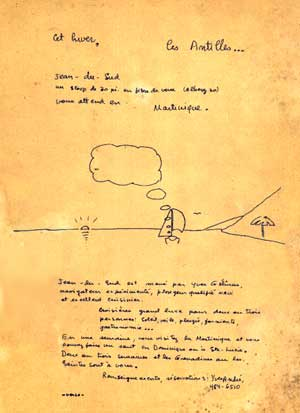 Cet hiver, les Antilles...
Jean-du-Sud
un sloop de 30 pi. en fibre de verre (Alberg 30)
vous attend en Martinique.
Jean-du-Sud est mené par Yves Gélinas,
navigateur expérimenté, plongeur qualifié
et excellent cuisinier.
Croisières grand luxe pour deux ou trois
personnes: soleil, voile, plongée, farniente,
gastronomie...
En une semaine, vous visitez la Martinique et vous
pouvez faire un saut en Dominique ou à Ste-Lucie.
Deux ou trois semaines et les Grenadines ou les
Saintes sont à vous.
Renseignements, réservations:
484-6510